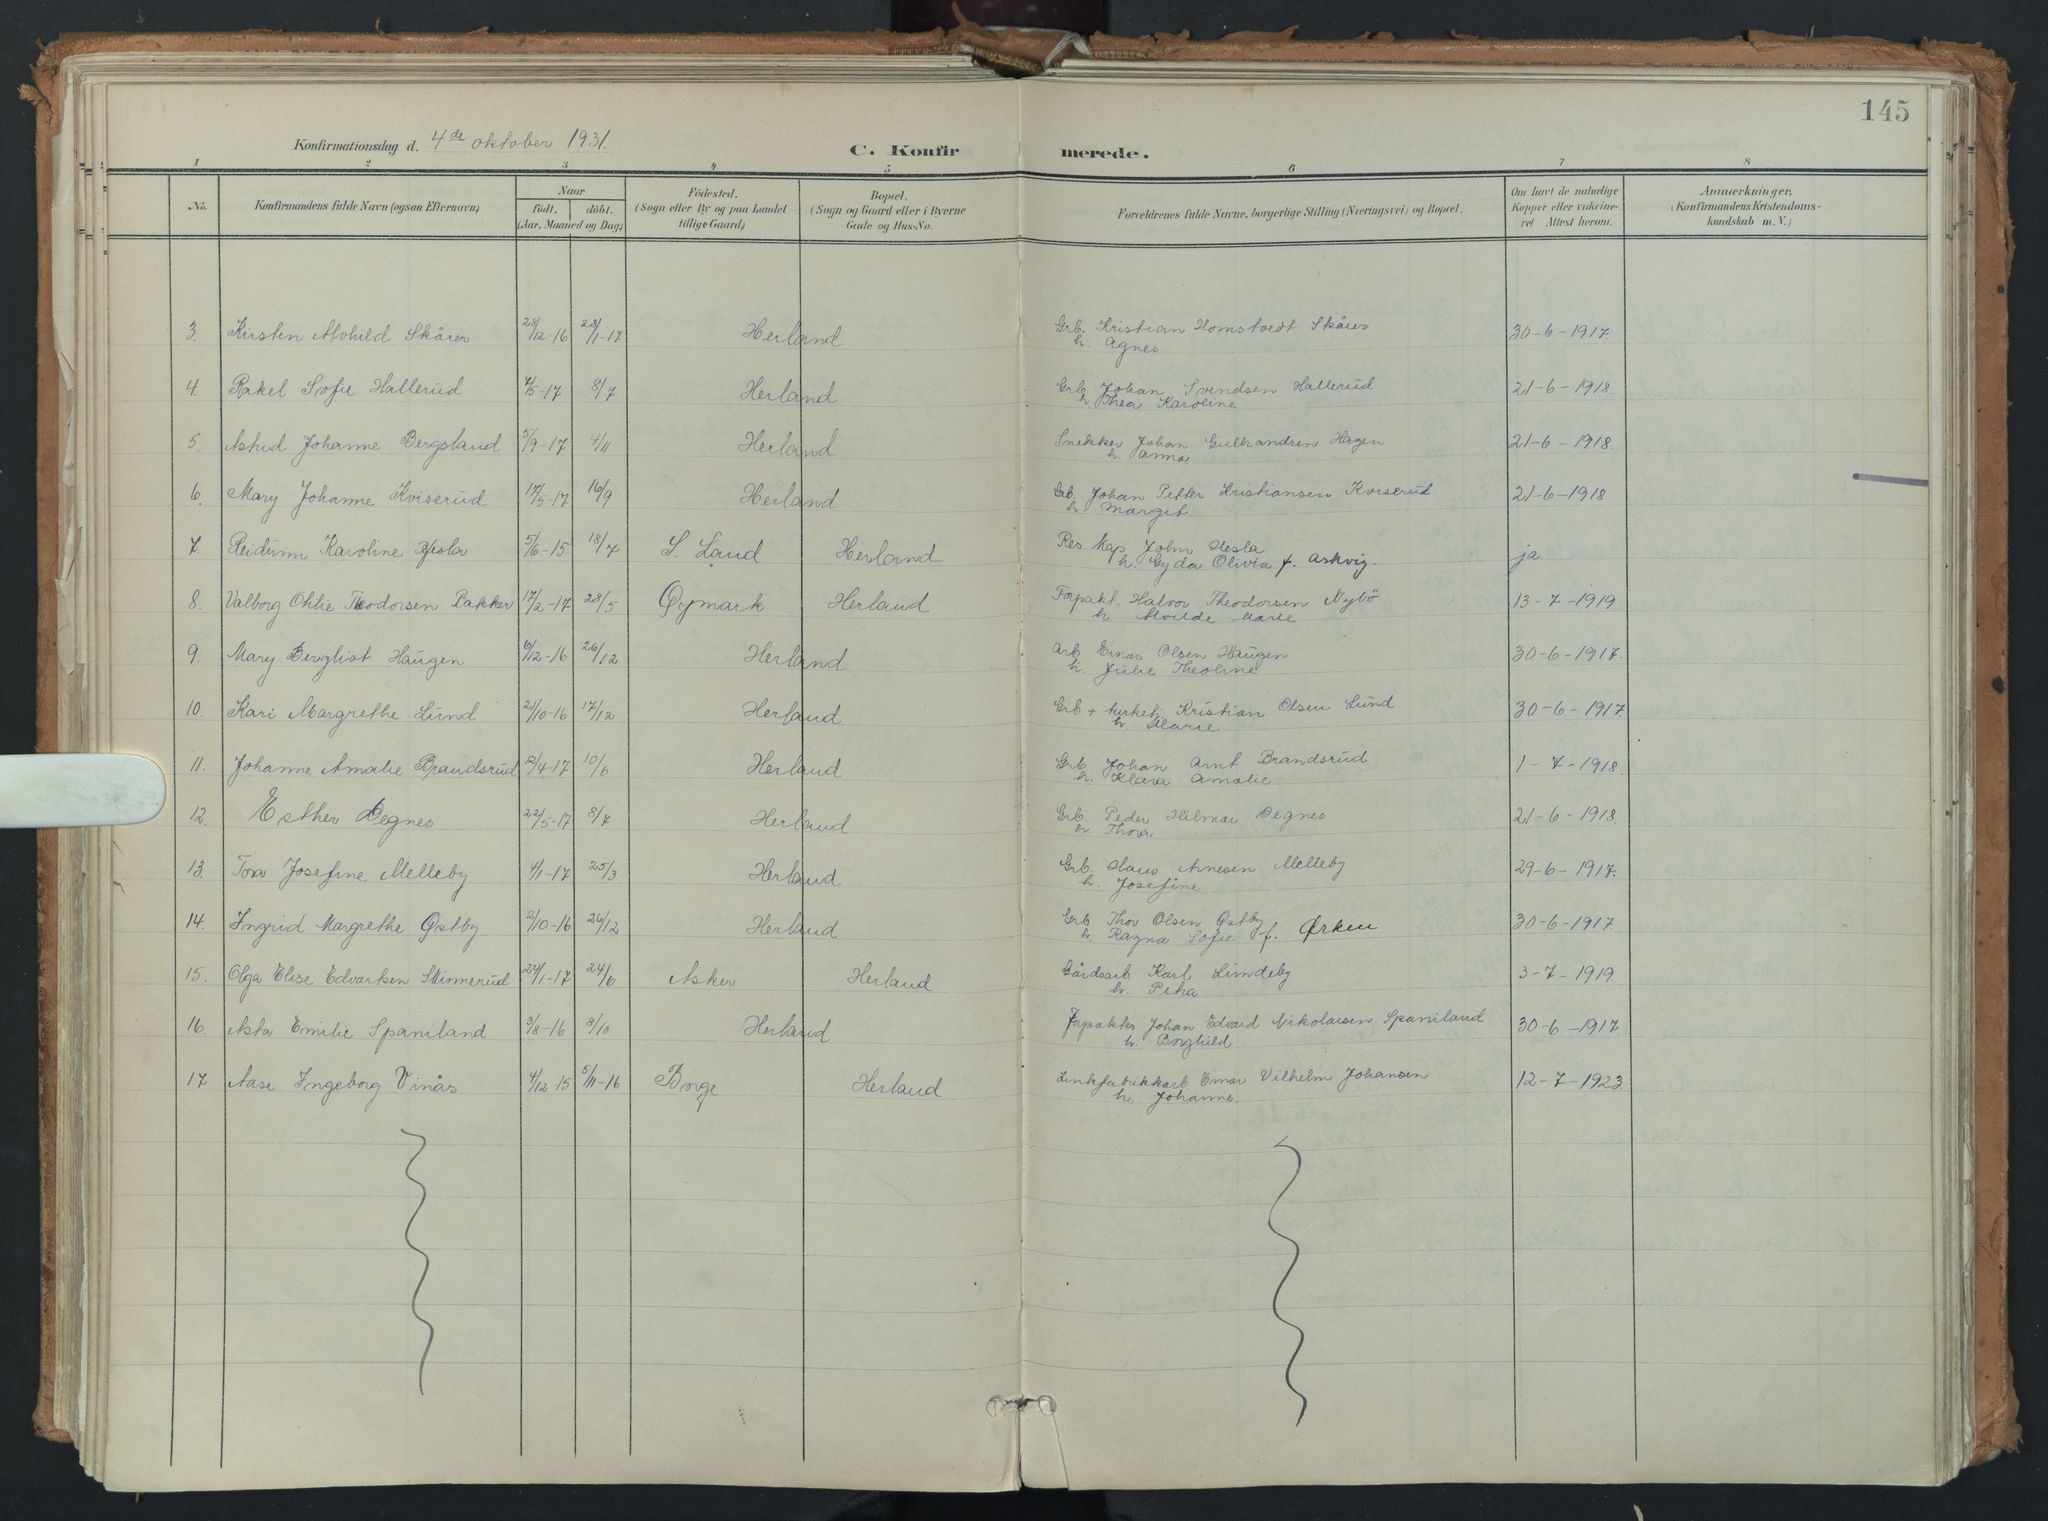 145
Konfirmationsdag d. 4de oktober 1931.
C. Konfirmerede.
1 2 3 4 5 6 7 8
No. Konfirmandens fulde Navn (ogsaa Efternavn) Naar födt. döbt. (Aar, Maaned og Dag) Födested. (Sogn eller By og paa Landet tillige Gaard) Bopæl. (Sogn og Gaard eller i Byerne Gade og Hus-No. Forældrenes fulde Navne, borgerlige Stilling (Næringsvei) og Bopæl. Om havt de naturlige Kopper eller vakcineret Attest herom. Anmærkninger. (Konfirmandens Kristendomskundskab m. V.)
3. Kirsten Alvhild Skårer 28/12-16 28/1-17 Herland Grb. Kristian Homstvedt Skårer 30-6-1917
h. Agnes
4. Rakel Sofie Hallerud 7/5-17 8/7 Herland Grb Johan Svendsen Hallerud 21-6-1918.
h Thea Karoline
5. Astrid Johanne Bergsland 5/9-17 4/11 Herland Snekker Johan Gulbrandsen Hagen 21-6-1918.
h. Anna
6. Mary Johanne Kviserud 17/5-17 16/9 Herland Grb. Johan Petter Kristiansen Kviserud 21-6-1918
h. Margit
7. Reidunn Karoline Hesla 5/6-15 18/7 S. Land Herland Res. Kap. John Hesla ja
h. Gyda Olivia f. Askvig.
8. Valborg Ohlie Theodorsen Bakker 17/2-17 28/5 Øymark Herland Forpakt. Halvor Theodorsen Nybö 13-7-1919
h. Alvilde Marie
9. Mary Bergliot Haugen 6/12-16 26/12 Herland Arb Einar Olsen Haugen 30-6-1917.
h. Julie Theoline
10. Kari Margrethe Lund 21/10-16 17/12 Herland Grb + kirketj. Kristian Olsen Lund 30-6-1917.
h. Marie
11. Johanne Amalie Brandsrud 12/4-17 10/6 Herland Grb. Johan Arnt Brandsrud 1-7-1918.
h. Klara Amalie
12. Esther Degnes 22/5-17 8/7 Herland Grb. Peder Hilmar Degnes 21-6-1918.
h. Thora
13. Tora Josefine Melleby 4/1-17 25/3 Herland Grb. Hans Arnesen Melleby 29-6-1917.
h. Josefine
14. Ingrid Margrethe Østby 2/10-16 26/12 Herland Grb Thor Olsen Østby 30-6-1917.
h. Ragna Sofie f. Ørken
15. Olga Elise Edvarksen 24/1-17 24/6 Asker Herland Gårdsarb Karl Lundeby 3-7-1919.
h. Petra
16. Asta Emilie Spaniland 3/8-16 8/10 Herland Forpakter Johan Edvard Nikolaisen Spaniland 30-6-1917.
h. Borghild
17. Aase Ingeborg Vinås 4/12-15 5/11-16 Borge Herland Einar Vilhelm Johansen 12-7-1923
h. Johanne.